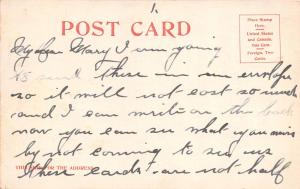 1.
POST CARD
Place Stamp
Here.
United States
and Canada,
One Cent.
Foreign, Two
Cents.
My dear Mary I am going
to send these in an envelope
so it will not cost so much
and I can write on the back
now you can see what you miss
by not coming to see us
THIS SIDE FOR THE ADDRESS
These cards are not half